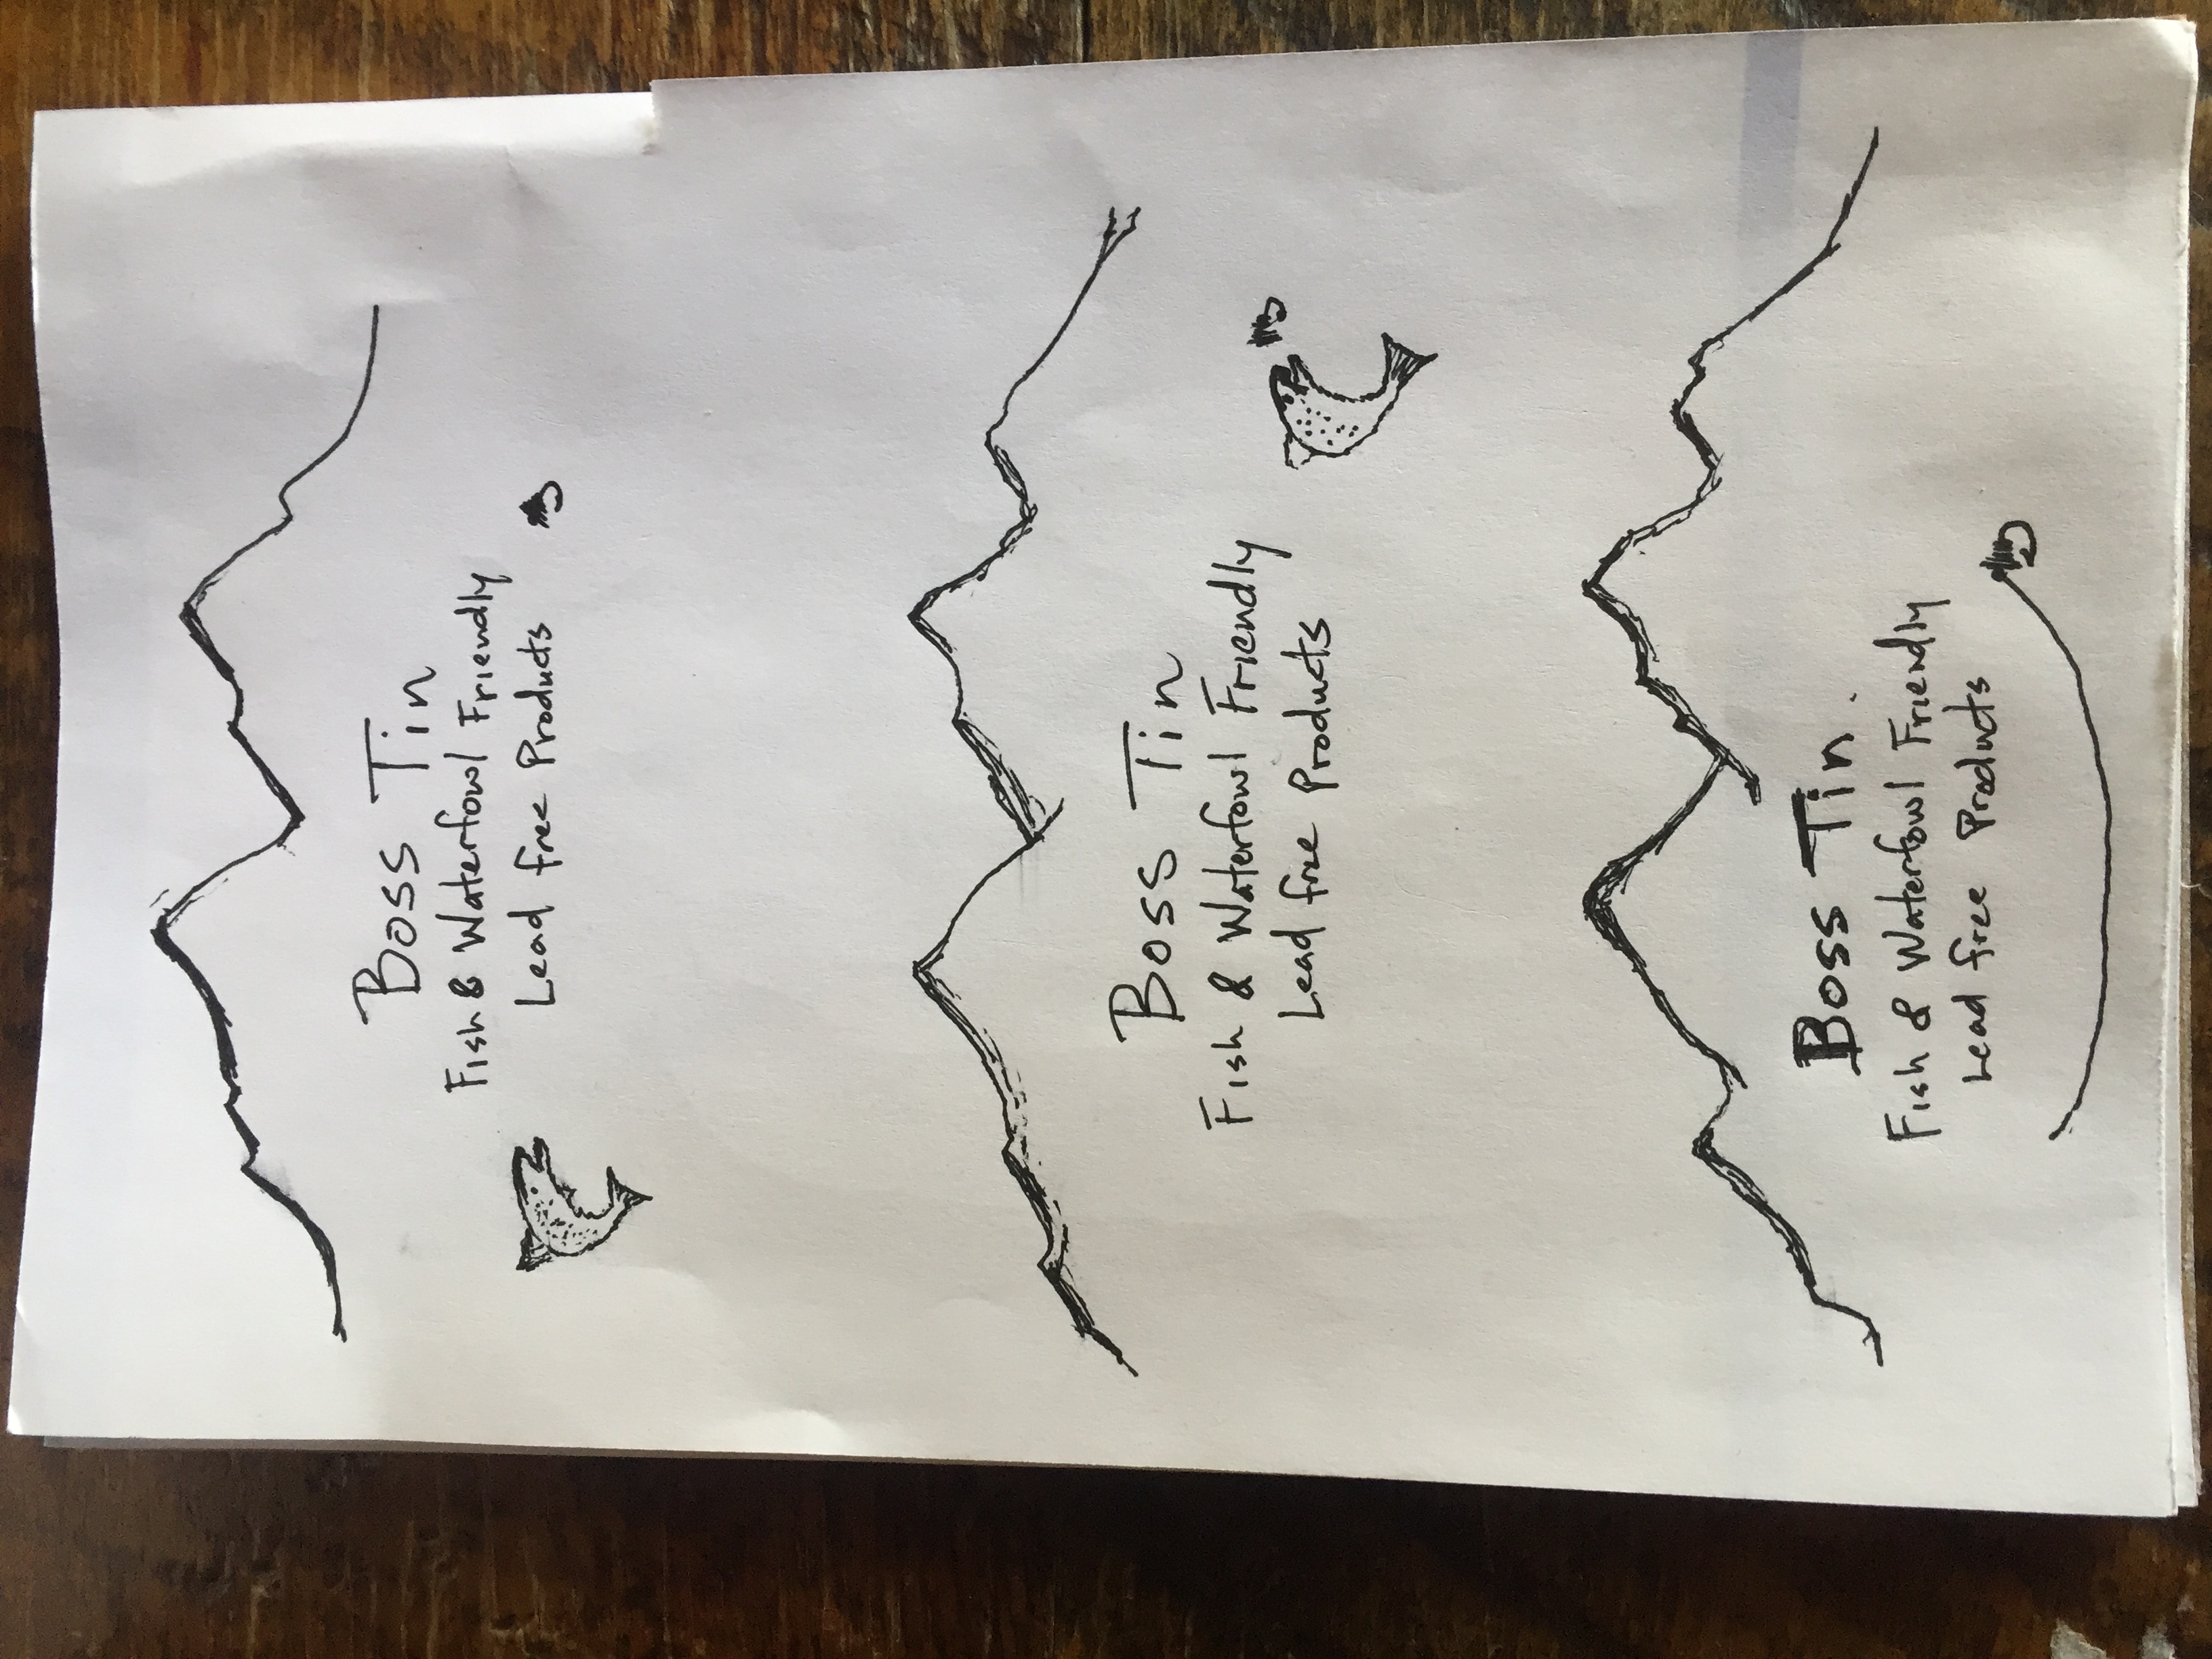 Boss Tin
Fish & Waterfowl Friendly
Lead free Products
Boss Tin
Fish & Waterfowl Friendly
Lead free Products
Boss Tin.
Fish & Waterfowl Friendly
Lead free Products